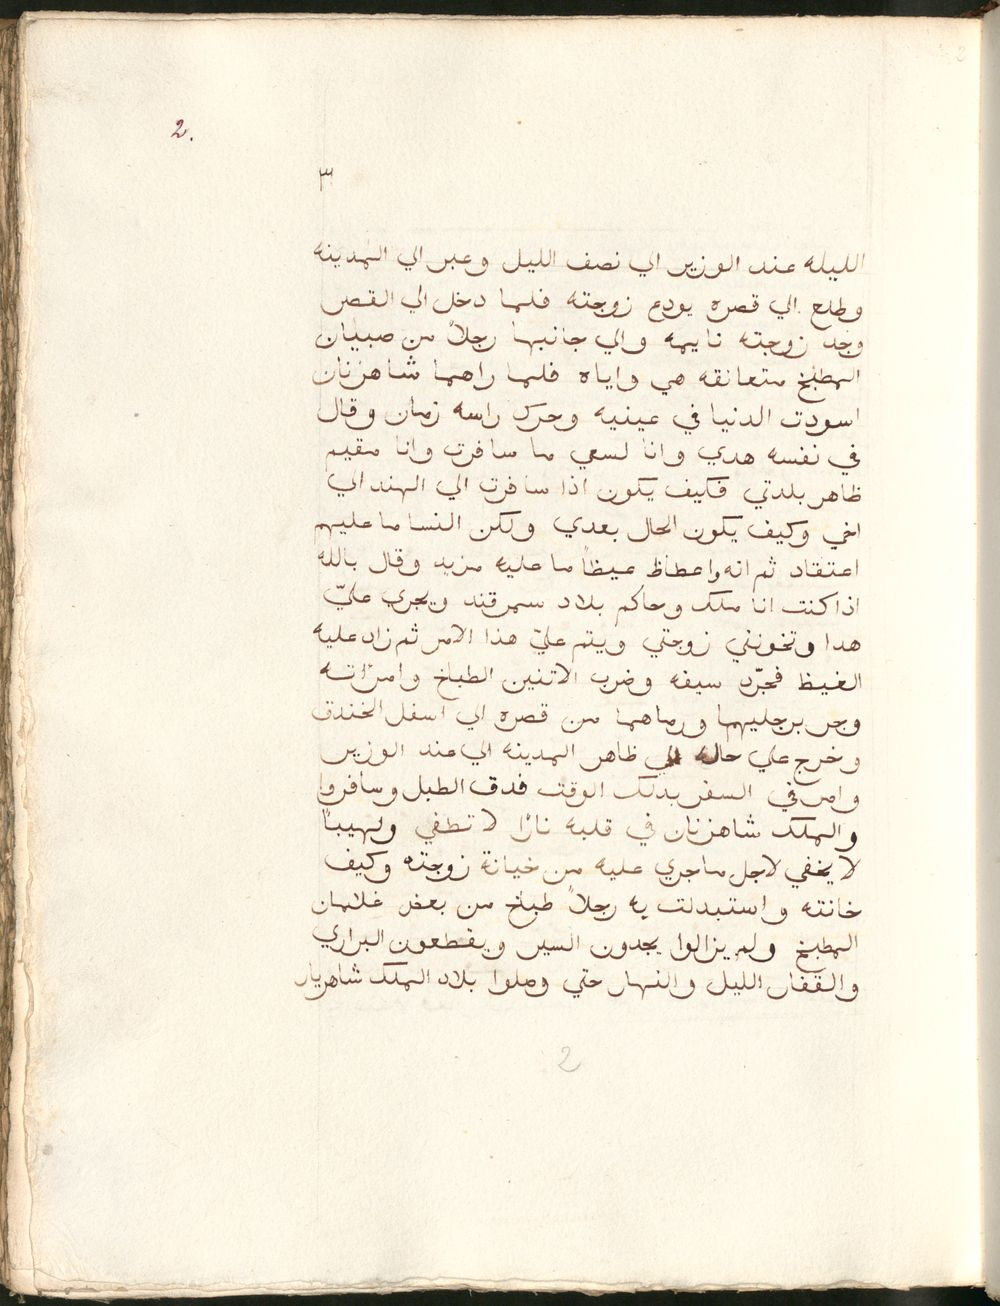 2.
٣
الليله عند الوزير الي نصف الليل وعبر الي المدينه
وطلع الي قصره يودع زوجته فلما دخل الي القصر
وجد زوجته نايمه والي جانبها رجلاً من صبيان
المطبخ متعانقه هي واياه فلما راهما شاهزنان
اسودت الدنيا في عينيه وحرك راسه زمان وقال
في نفسه هدي وانا لسعي ما سافرت وانا مقيم
ظاهر بلدتي فكيف يكون اذا سافرت الي الهند الي
اخي وكيف يكون الحال بعدي ولكن النسا ما عليهم
اعتقاد ثم انه اعطاظ غيظاً ما عليه مزيد وقال بالله
اذا كنت انا ملك وحاكم بلاد سمرقند ويجري عليّ
هدا وتخونني زوجتي ويتم عليّ هذا الامر ثم زاد عليه
الغيظ فجرّد سيفه وضرب الاتنين الطباخ وامرًاته
وجر برجليهما ورماهما من قصره الي اسفل الخندق
وخرج علي حاله الي ظاهر المدينه الي عند الوزير
وامر في السفر بدلك الوقت فدق الطبل وسافروا
والملك شاهزنان في قلبه نارًا لا تطفي ولهيباً
لا يخفي لاجل ما جري عليه من خيانة زوجته وكيف
خانته واستبدلت به رجلاً طباخ من بعض غلمان
المطبخ ولم يزالوا يجدون السير ويقطعون البراري
والقفار الليل والنهار حتي وصلوا بلاد الملك شاهريار
2